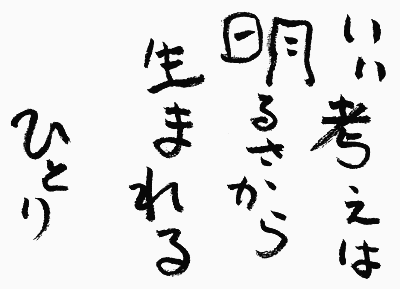 いい考えは
明るさから
生まれる
ひとり